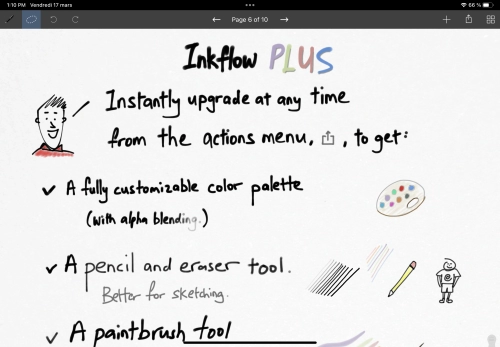 1:10 PM Vendredi 17 mars
66 %
Page 6 of 10
Inkflow PLUS
Instantly upgrade at any time
from the actions menu, , to get:
✓ A fully customizable color palette
(with alpha blending.)
✓ A pencil and eraser tool.
Better for sketching.
✓ A paintbrush tool